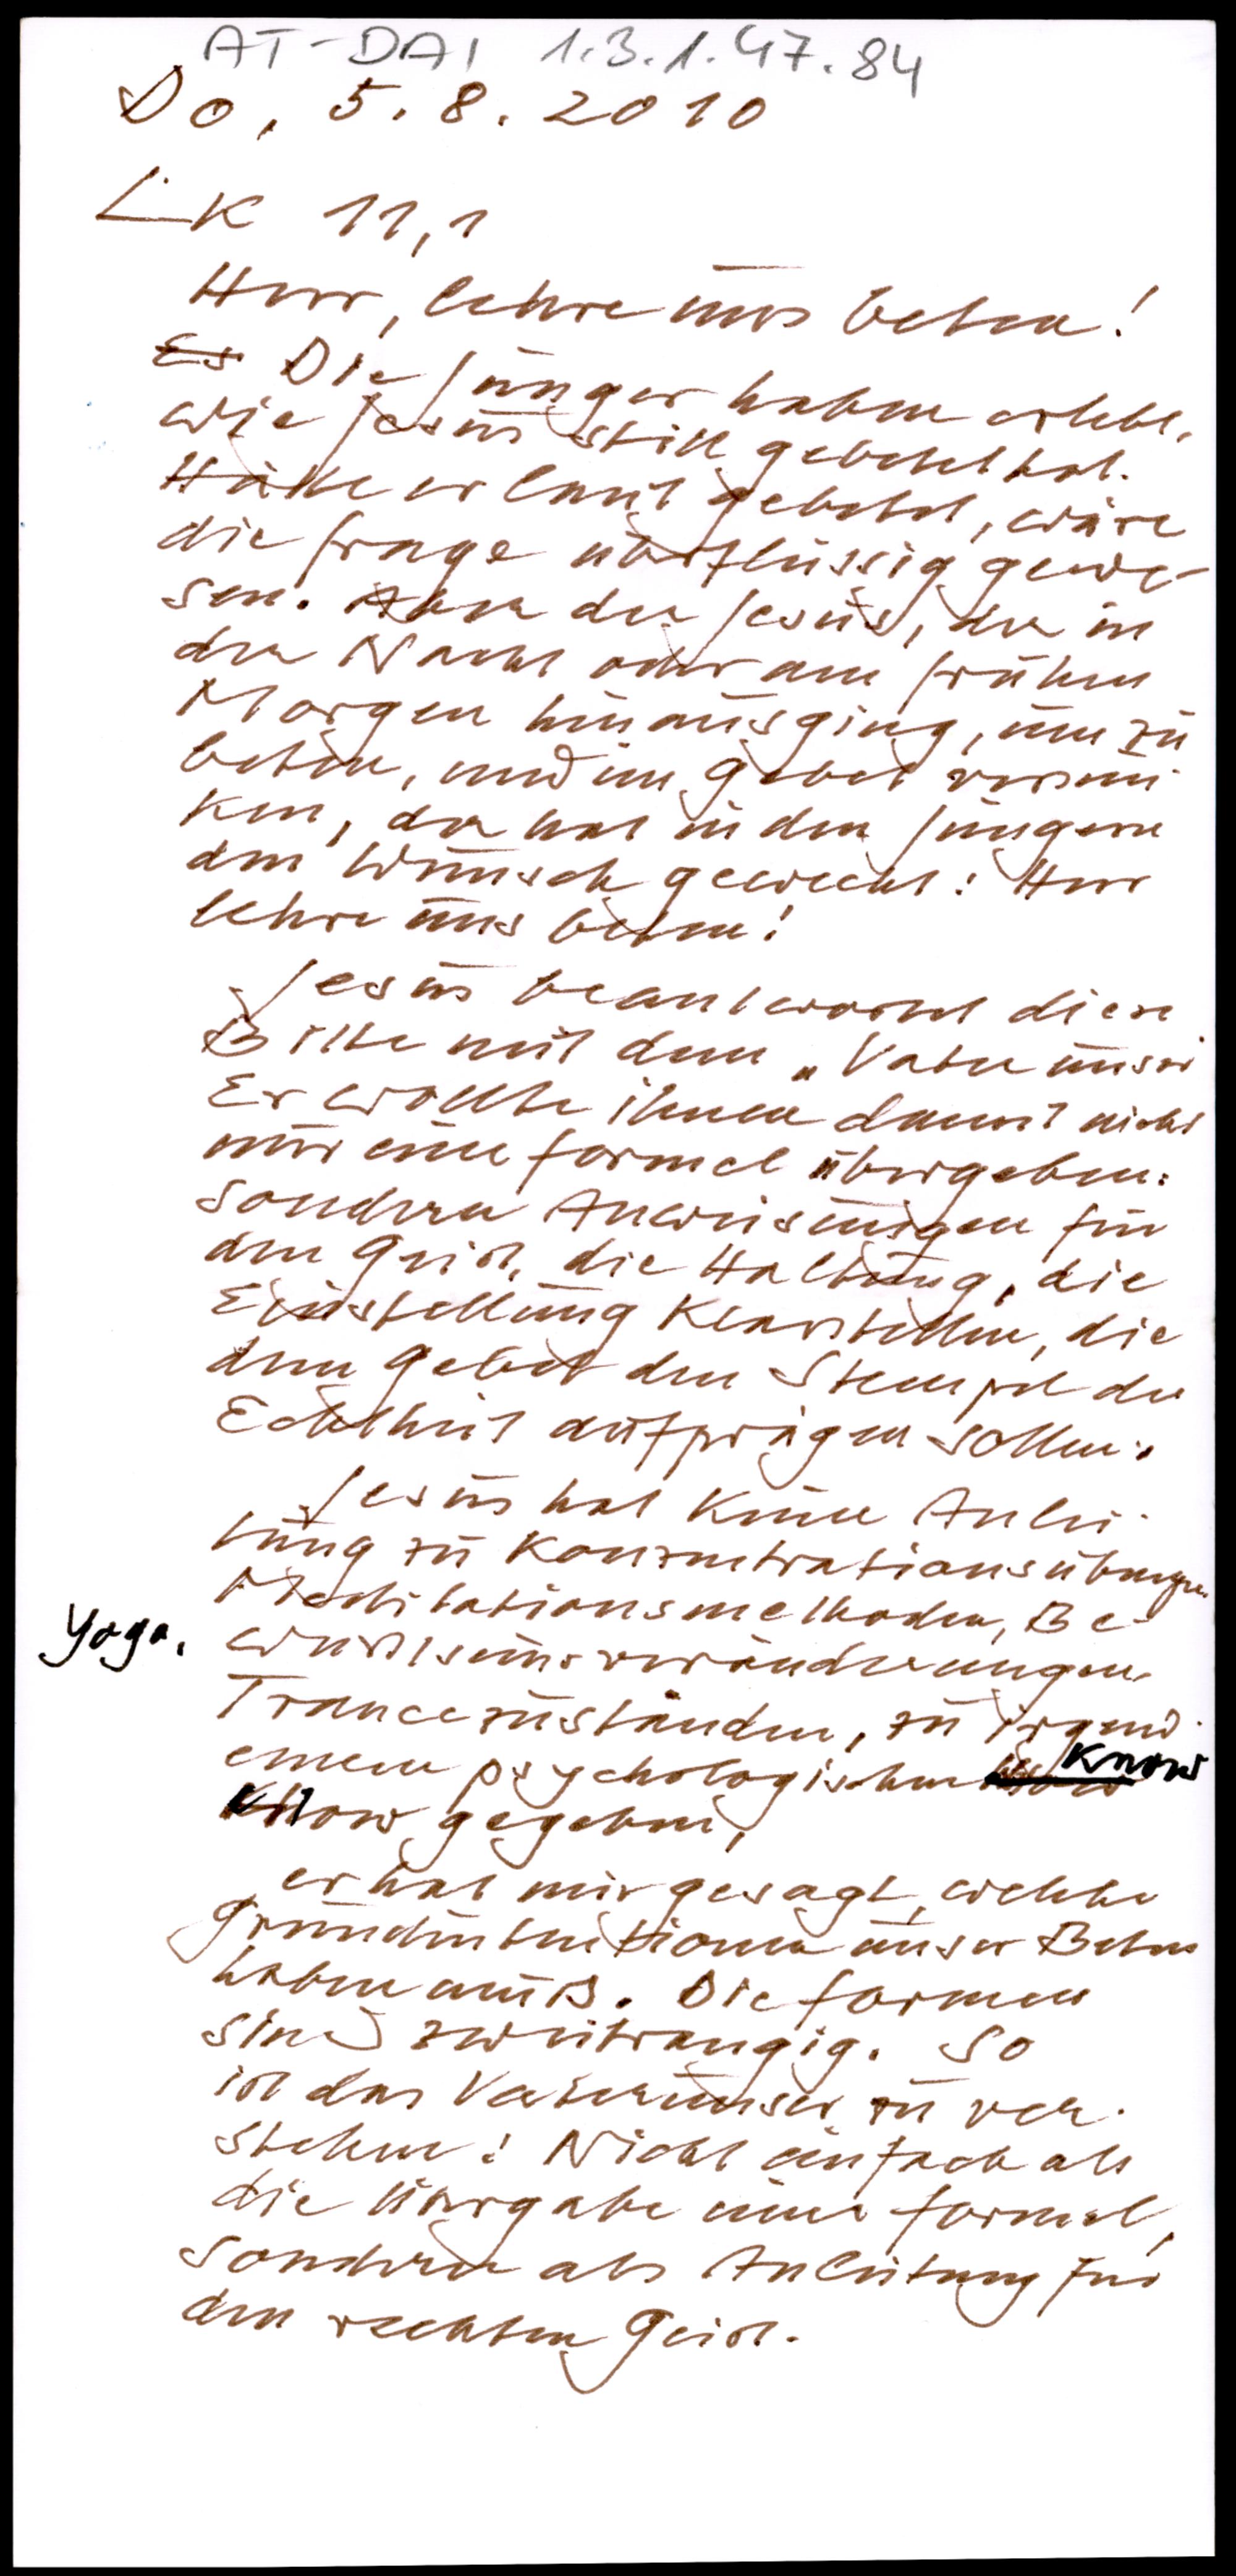 AT-DAI 1.3.1.47.84
Do, 5.8.2010
LK 11,1
Herr, lehre uns beten!
Es Die Jünger haben erlebt,
wie Jesus still gebetet hat.
Hätte er laut gebetet, wäre
die Frage überflüssig gewe-
sen. Aber der Jesus, der in
der Nacht oder am frühen
Morgen hinausging, um zu
beten, und im Gebet versun-
ken, der hat in den Jüngern
den Wunsch geweckt: Herr
lehre uns beten!
Jesus beantwortet diese
Bitte mit dem „Vater unser
Er wollte ihnen damit nicht
nur eine Formel übergeben:
sondern Anweisungen für
den Geist, die Haltung, die
Einstellung klarstellen, die
dem Gebet den Stempel der
Echtheit aufprägen sollen.
Jesus hat keine Anlei-
tung zu Konzentrationsübungen
Meditationsmethoden, Be-
Yoga, wusstseinsveränderungen
Trancezuständen, zu irgend-
einem psychologischen Know
how gegeben,
er hat nur gesagt, welche
Grundintentionen unser Beten
haben muß. Die Formen
sind zweitrangig. So
ist das Vaterunser zu ver-
stehen: Nicht einfach als
die Übergabe einer Formel,
sondern als Anleitung für
den rechten Geist.